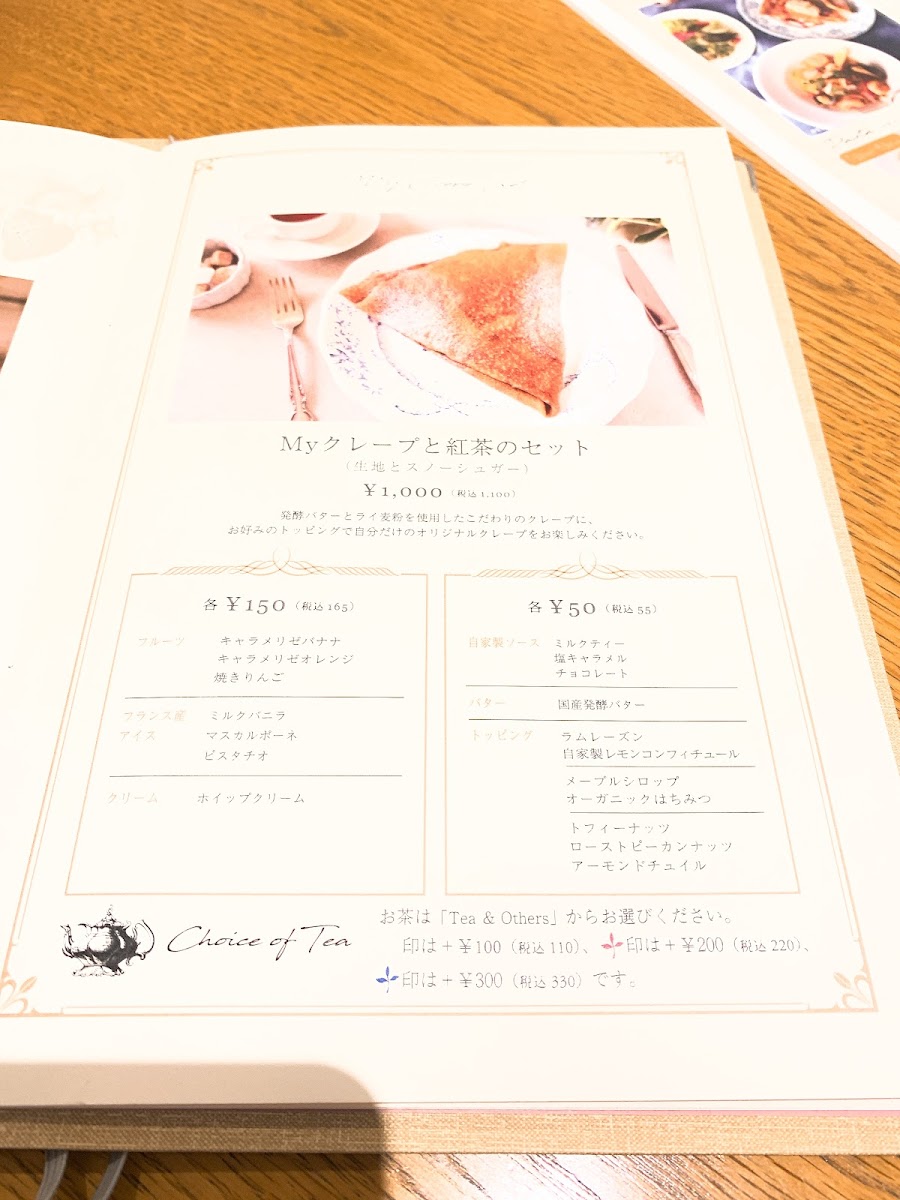 Myクレープと紅茶のセット
(生地とスノーシュガー)
¥1,000(税込1,100)
発酵バターとライ麦粉を使用したこだわりのクレープに、
お好みのトッピングで自分だけのオリジナルクレープをお楽しみください。
各¥150(税込165)
フルーツ キャラメリゼバナナ
キャラメリゼオレンジ
焼きりんご
フランス産 ミルクバニラ
アイス マスカルポーネ
ピスタチオ
クリーム ホイップクリーム
各¥50(税込55)
自家製ソース ミルクティー
塩キャラメル
チョコレート
バター 国産発酵バター
トッピング ラムレーズン
自家製レモンコンフィチュール
メープルシロップ
オーガニックはちみつ
トフィーナッツ
ローストピーカンナッツ
アーモンドチュイル
Choice of Tea
お茶は「Tea & Others」からお選びください。
印は+¥100(税込110)、印は+¥200(税込220)、
印は+¥300(税込330)です。